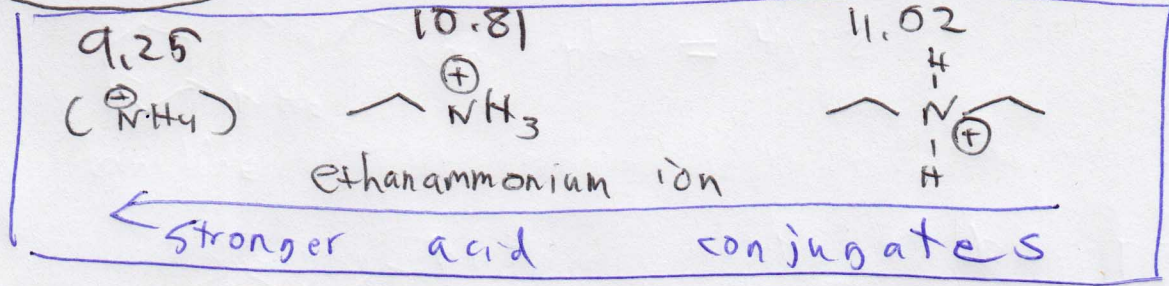 9.25 10.81 11.02
H
(⊕NH4) ⊕NH3 N⊕
H
ethanammonium ion
stronger acid conjugates